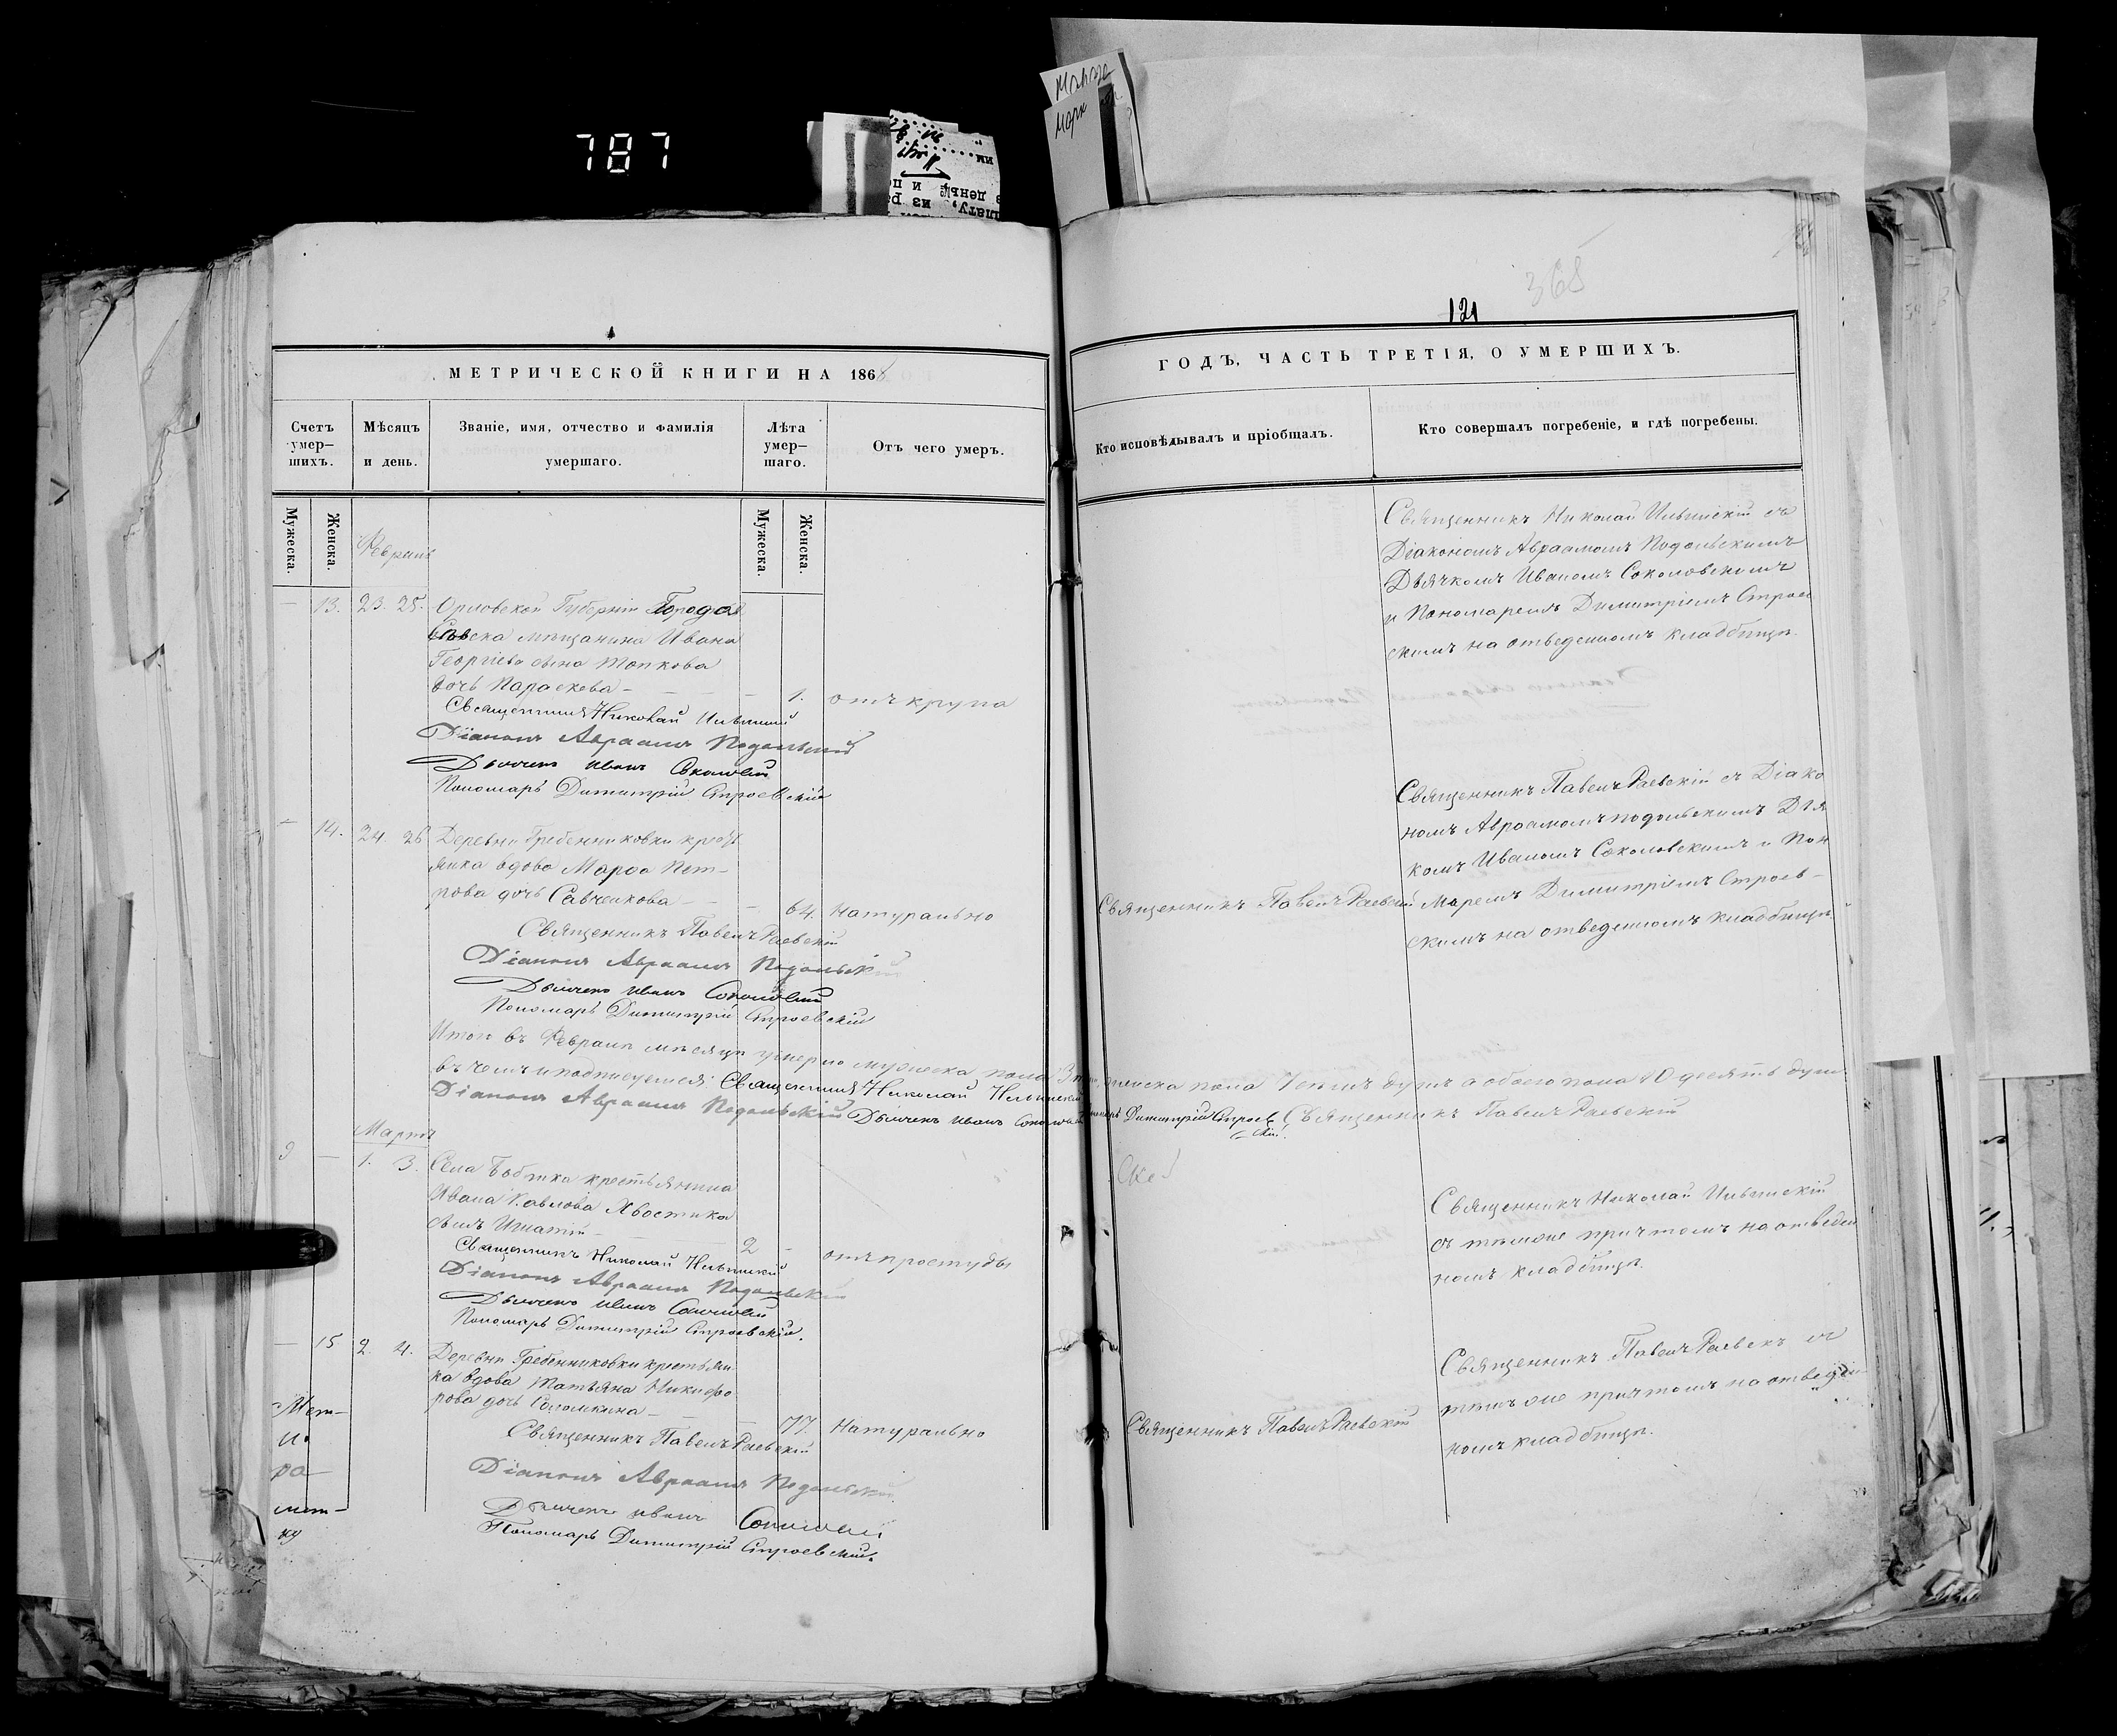 787
365
121
МЕТРИЧЕСКОЙ КНИГИ НА 186
Счетъ умер-шихъ.
Мѣсяцъ и день.
Званіе, имя, отчество и фамилія умершаго.
Лѣта умер-шаго.
Отъ чего умеръ.
Мужеска.
Женска.
Мужеска.
Женска.
Февраль
13. 23. 25. Орловской Губерніи Города
Сѣвска мѣщанина Ивана
Георгіева сына Топкова
дочь Параскева 1. отъ крупа
Священникъ Николай Ильинскій
Діаконъ Авраамъ Подольскій
Дьячекъ Иванъ Соколовскій
Пономарь Димитрій Строевскій
14. 24. 26 Деревни Гребенниковки кресть
янка вдова Марфа Пет-
рова дочь Савченкова 64. Натурально
Священникъ Павелъ Раевскій
Діаконъ Авраамъ Подольскій
Дьячекъ Иванъ Соколовскій
Пономарь Димитрій Строевскій
Итого въ Февралѣ мѣсяцѣ умерло мужеска пола 3
въ чемъ и подписуемся: Священникъ Николай Ильинскій
Діаконъ Авраамъ Подольскій Дьячекъ Иванъ Соколовскій
Мартъ
9 1. 3. Села Бобрика крестьянина
Ивана Павлова Хвостика
сынъ Игнатій 2 отъ простуды
Священникъ Николай Ильинскій
Діаконъ Авраамъ Подольскій
Дьячекъ Иванъ Соколовскій
Пономарь Димитрій Строевскій.
15 2. 4. Деревни Гребенниковки крестьян
ка вдова Татьяна Никифо
рова дочь Соломкина 77. Натурально
Священникъ Павелъ Раевскій
Діаконъ Авраамъ Подольскій
Дьячекъ Иванъ Соколовскій
Пономарь Димитрій Строевскій.
ГОДЪ, ЧАСТЬ ТРЕТІЯ, О УМЕРШИХЪ.
Кто исповѣдывалъ и пріобщалъ.
Кто совершалъ погребеніе, и гдѣ погребены.
Священникъ Николай Ильинскій съ
Діакономъ Авраамомъ Подольскимъ
Дьячкомъ Иваномъ Соколовскимъ
и Пономаремъ Димитріемъ Строев
скимъ на отведенномъ кладбищѣ.
Священникъ Павелъ Раевскій съ Діако
номъ Авраамомъ Подольскимъ Дья
комъ Иваномъ Соколовскимъ и Пон
Священникъ Павелъ Раевскій
маремъ Димитріемъ Строев-
скимъ на отведенномъ кладбищѣ.
женска пола 7 семь душъ а обоего пола 10 десять душъ
Пономарь Димитрій Строевскій. Священникъ Павелъ Раевскій
Священникъ Николай Ильинскій
съ тѣмъ же причтомъ на отведен
номъ кладбищѣ.
Священникъ Павелъ Раевскъ съ
Священникъ Павелъ Раевскій
тѣмъ же причтомъ на отведен-
номъ кладбищѣ.